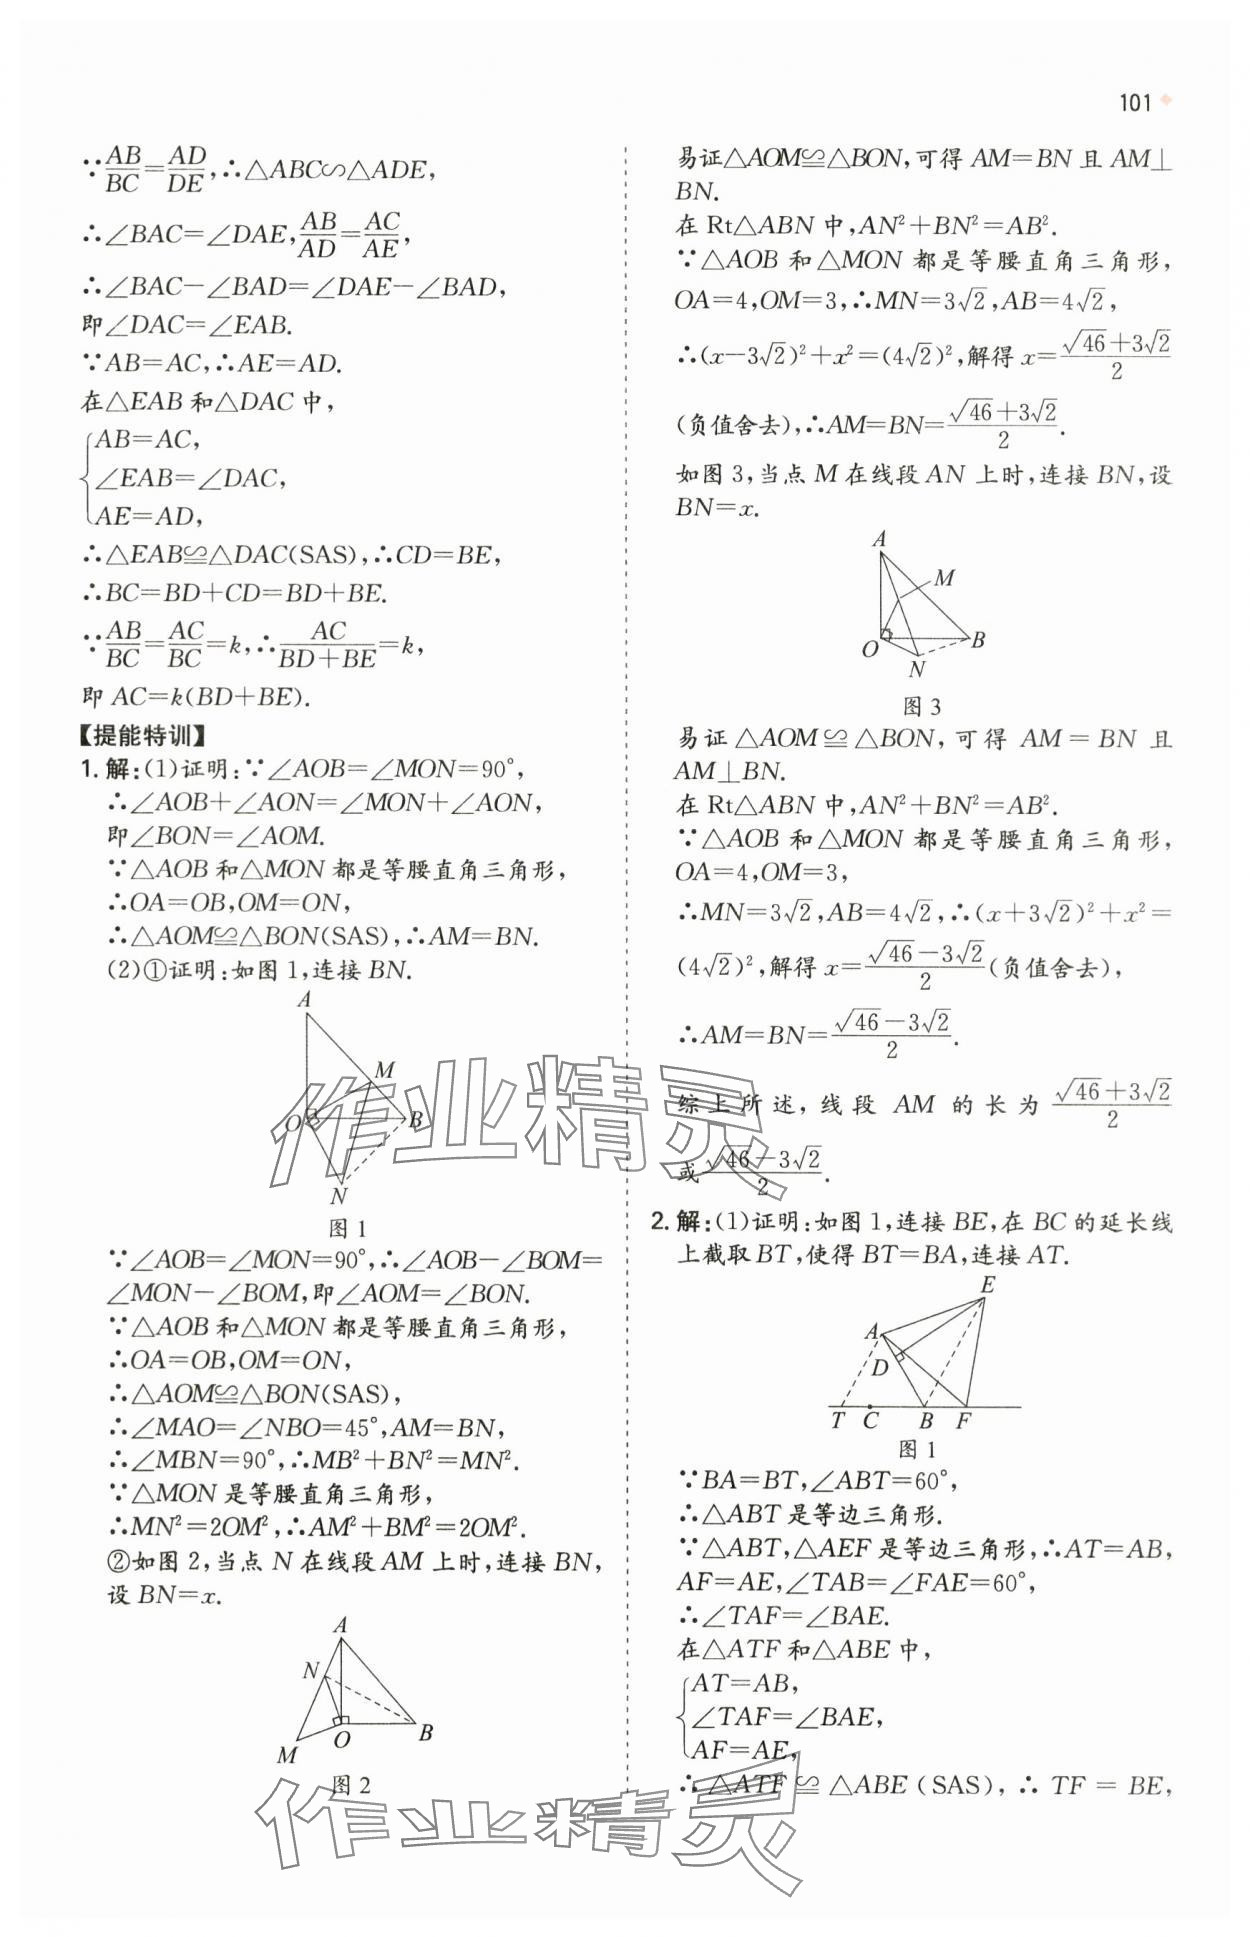 101
∵AB/BC=AD/DE,∴△ABC∽△ADE,
∴∠BAC=∠DAE,AB/AD=AC/AE,
∴∠BAC−∠BAD=∠DAE−∠BAD,
即∠DAC=∠EAB.
∵AB=AC,∴AE=AD.
在△EAB和△DAC中,
{AB=AC,
∠EAB=∠DAC,
AE=AD,
∴△EAB≌△DAC(SAS),∴CD=BE,
∴BC=BD+CD=BD+BE.
∵AB/BC=AC/BC=k,∴AC/(BD+BE)=k,
即 AC=k(BD+BE).
【提能特训】
1. 解:(1)证明:∵∠AOB=∠MON=90°,
∴∠AOB+∠AON=∠MON+∠AON,
即∠BON=∠AOM.
∵△AOB和△MON都是等腰直角三角形,
∴OA=OB,OM=ON,
∴△AOM≌△BON(SAS),∴AM=BN.
(2)①证明:如图1,连接BN.
A
M
O
B
N
图1
∵∠AOB=∠MON=90°,∴∠AOB−∠BOM=
∠MON−∠BOM,即∠AOM=∠BON.
∵△AOB和△MON都是等腰直角三角形,
∴OA=OB,OM=ON,
∴△AOM≌△BON(SAS),
∴∠MAO=∠NBO=45°,AM=BN,
∴∠MBN=90°,∴MB²+BN²=MN².
∵△MON是等腰直角三角形,
∴MN²=2OM²,∴AM²+BM²=2OM².
②如图2,当点N在线段AM上时,连接BN,
设BN=x.
A
N
O
B
M
图2
易证△AOM≌△BON,可得AM=BN且AM⊥
BN.
在Rt△ABN中,AN²+BN²=AB².
∵△AOB和△MON都是等腰直角三角形,
OA=4,OM=3,∴MN=3√2,AB=4√2,
∴(x−3√2)²+x²=(4√2)²,解得x=(√46+3√2)/2
(负值舍去),∴AM=BN=(√46+3√2)/2.
如图3,当点M在线段AN上时,连接BN,设
BN=x.
A
M
O
B
N
图3
易证△AOM≌△BON,可得AM=BN且
AM⊥BN.
在Rt△ABN中,AN²+BN²=AB².
∵△AOB和△MON都是等腰直角三角形,
OA=4,OM=3,
∴MN=3√2,AB=4√2,∴(x+3√2)²+x²=
(4√2)²,解得x=(√46−3√2)/2(负值舍去),
∴AM=BN=(√46−3√2)/2.
综上所述,线段AM的长为(√46+3√2)/2
或(√46−3√2)/2.
2. 解:(1)证明:如图1,连接BE,在BC的延长线
上截取BT,使得BT=BA,连接AT.
E
A
D
T C B F
图1
∵BA=BT,∠ABT=60°,
∴△ABT是等边三角形.
∵△ABT,△AEF是等边三角形,∴AT=AB,
AF=AE,∠TAB=∠FAE=60°,
∴∠TAF=∠BAE.
在△ATF和△ABE中,
{AT=AB,
∠TAF=∠BAE,
AF=AE,
∴△ATF≌△ABE(SAS),∴TF=BE,
作业精灵
作业精灵